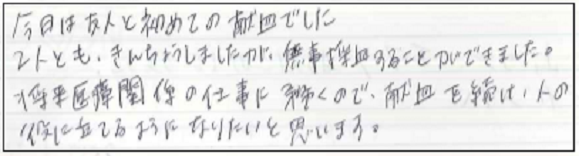 今日は友人と初めての献血でした
2人とも、きんちょうしましたが、無事採血することができました。
将来医療関係の仕事に就くので、献血を続け、人の
役に立てるようになりたいと思います。